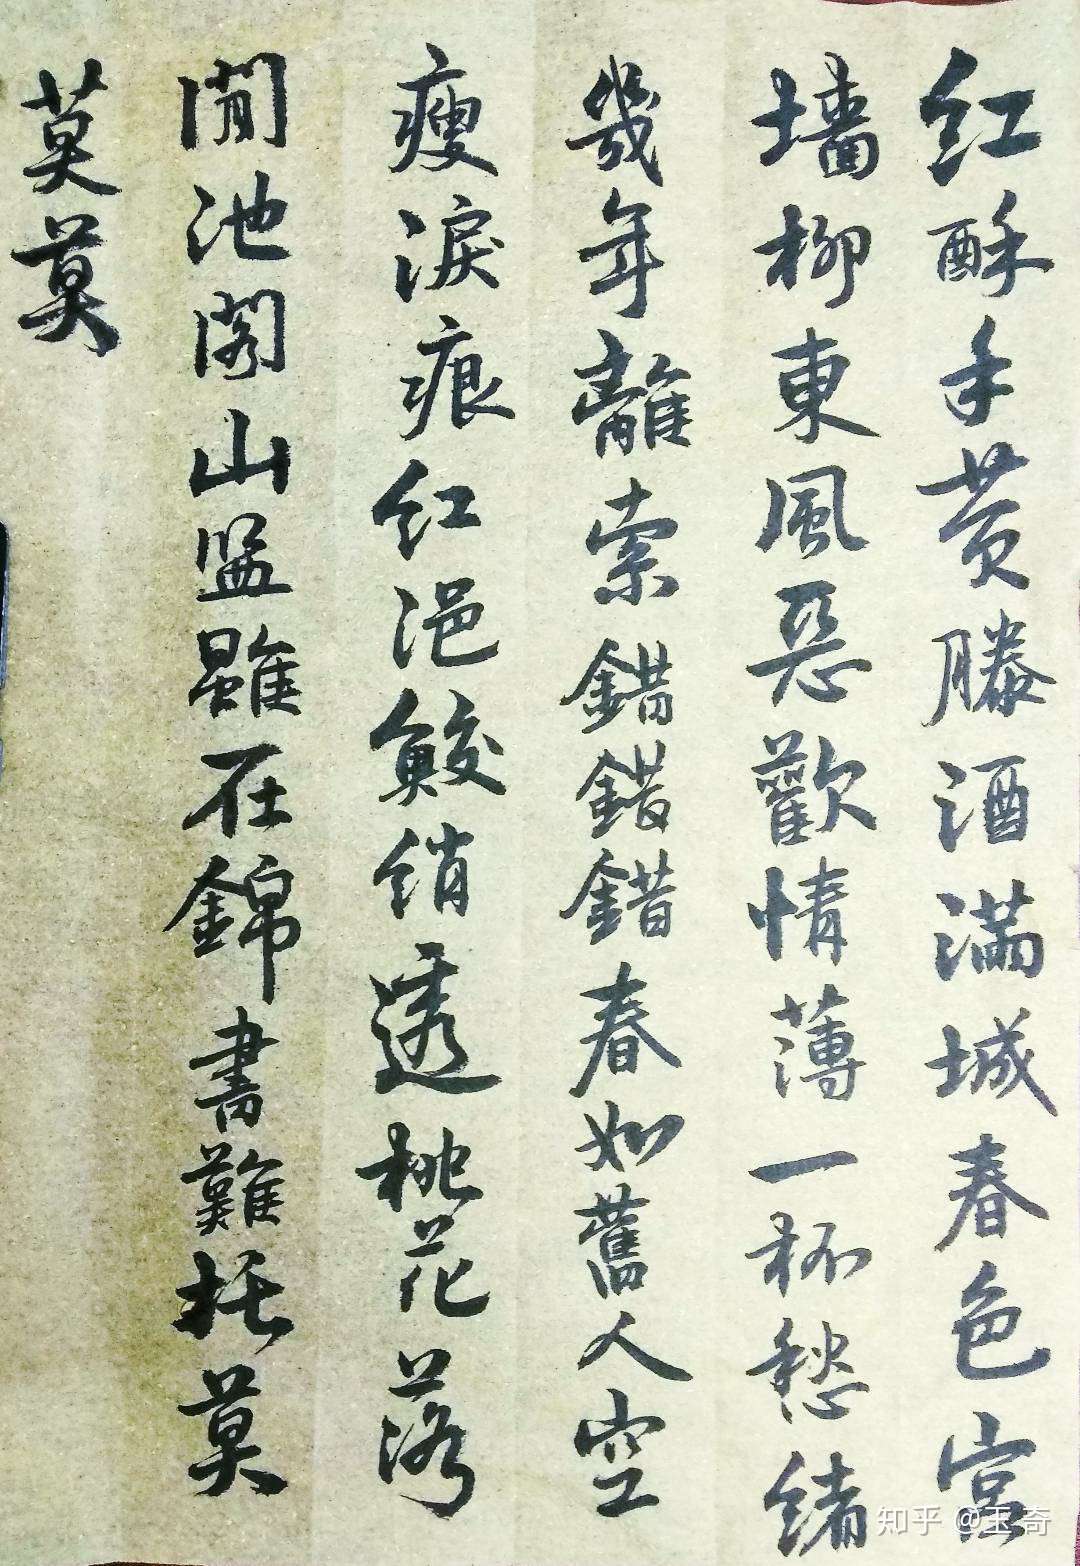 红酥手黄滕酒满城春色宫
墙柳東風惡歡情薄一杯愁緒
幾年離索錯錯錯春如舊人空
瘦淚痕红浥鮫绡透桃花落
閒池閣山盟雖在錦書難托莫
莫莫
知乎 @玉奇